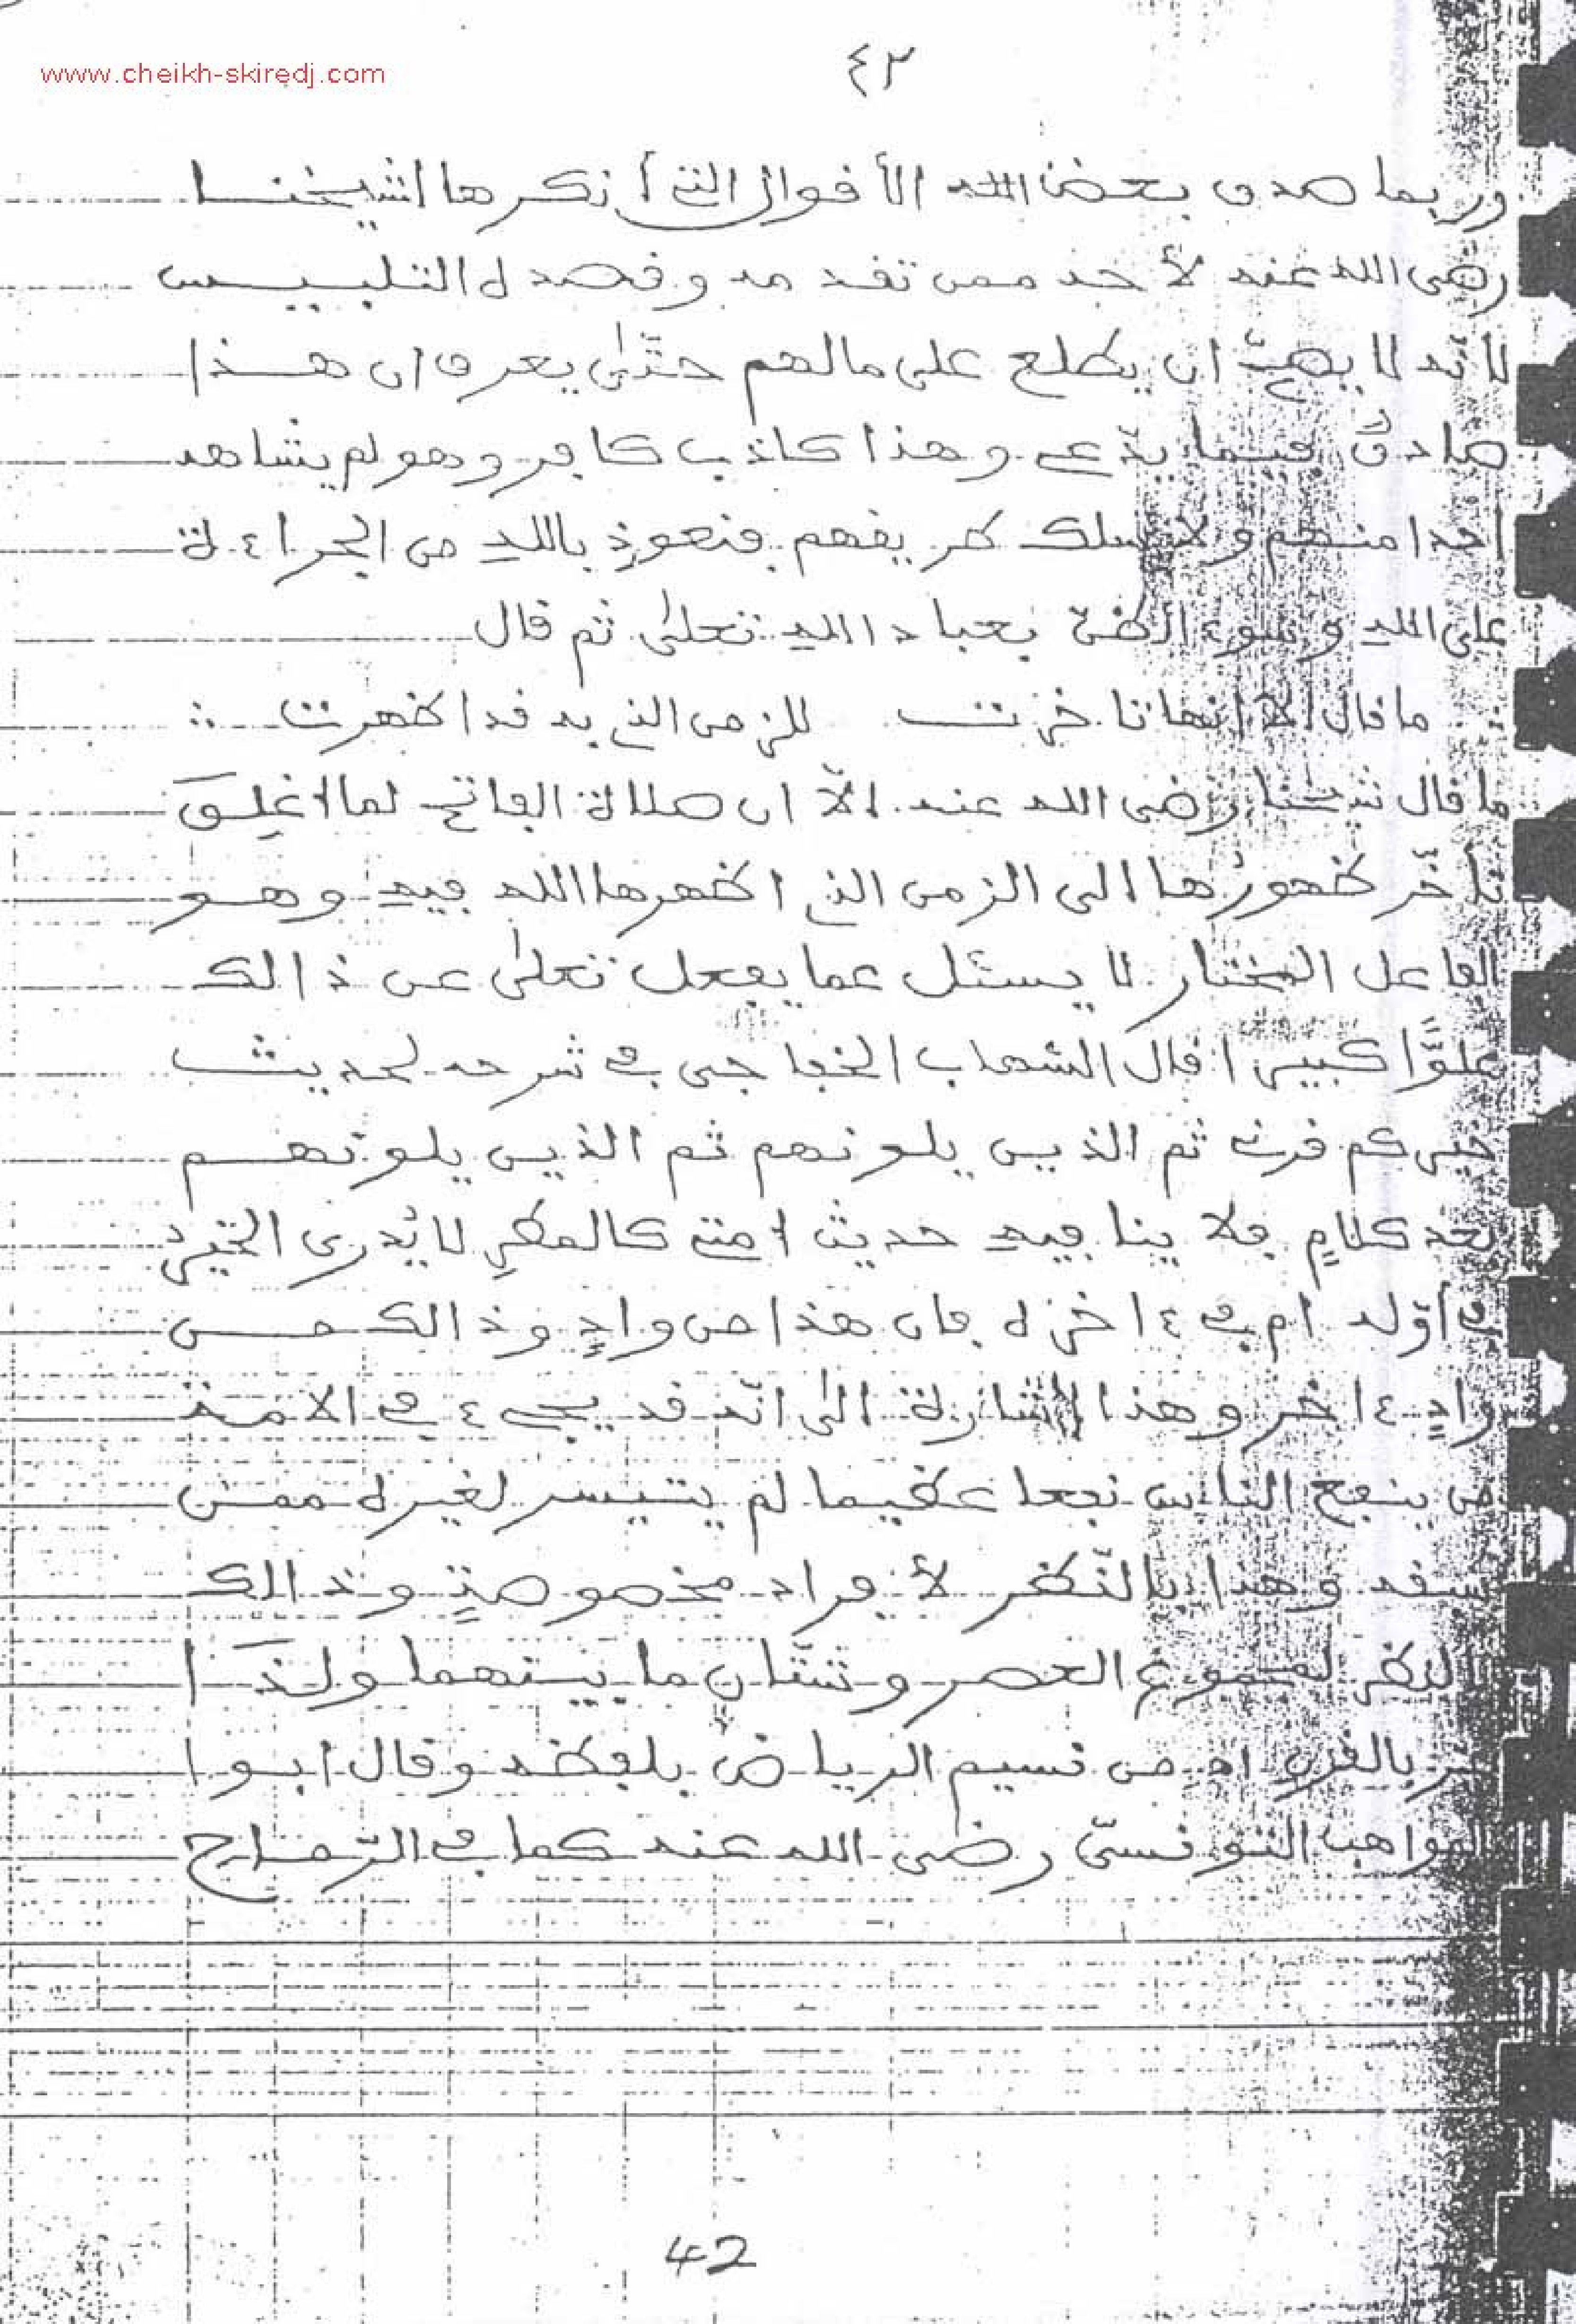 www.cheikh-skiredj.com
٤٢
وربما صدق بعض الأقوال التي أنكرها لشيخنا
رضى الله عنه لأحد ممن تقدمه وقصده التلبيس
لانه لا يهمّه ان يطلع على مالهم حتّى يعرف ان هذا
صادقٌ فيما يدّعى وهذا كاذب كافر وهو لم يشاهد
احدا منهم ولا سلك طريقهم فنعوذ بالله من الجراءة
على الله وسوء الظن بعباد الله تعلى ثم قال
ما قال الا انها تاخرت للزمن الذي به قد اظهرت
ما قال شيخنا رضى الله عنه الاّ ان صلاة الفاتح لما اغلِقَ
تأخّر ظهورُها الى الزمن الذي اظهرها الله فيه وهو
الفاعل المختار لا يسئل عما يفعل تعلى عن ذالك
علوًّا كبيرا قال الشهاب الخفاجى في شرحه لحديث
خيركم قرني ثم الذين يلونهم ثم الذين يلونهم
بعد كلامٍ فلا ينافيه حديث امتي كالمطرِ لا يُدرى الخير
في أوّله ام في ءاخره فان هذا من وادٍ وذالك من
وادٍ ءاخر وهذا اشارة الى انّه قد يجىء في الامة
من ينفع الناس نفعا عظيما لم يتيسر لغيره ممن
سبقه وهذا بالنّظر لأفراد مخصوصةٍ وذالك
بالنظر لمجموع العصر وشتّان ما بينهما ولذَا
عبر بالقرن اه من نسيم الرياض بلفظه وقال ابوا
المواهب التونسىّ رضى الله عنه كما في الرّماح
42